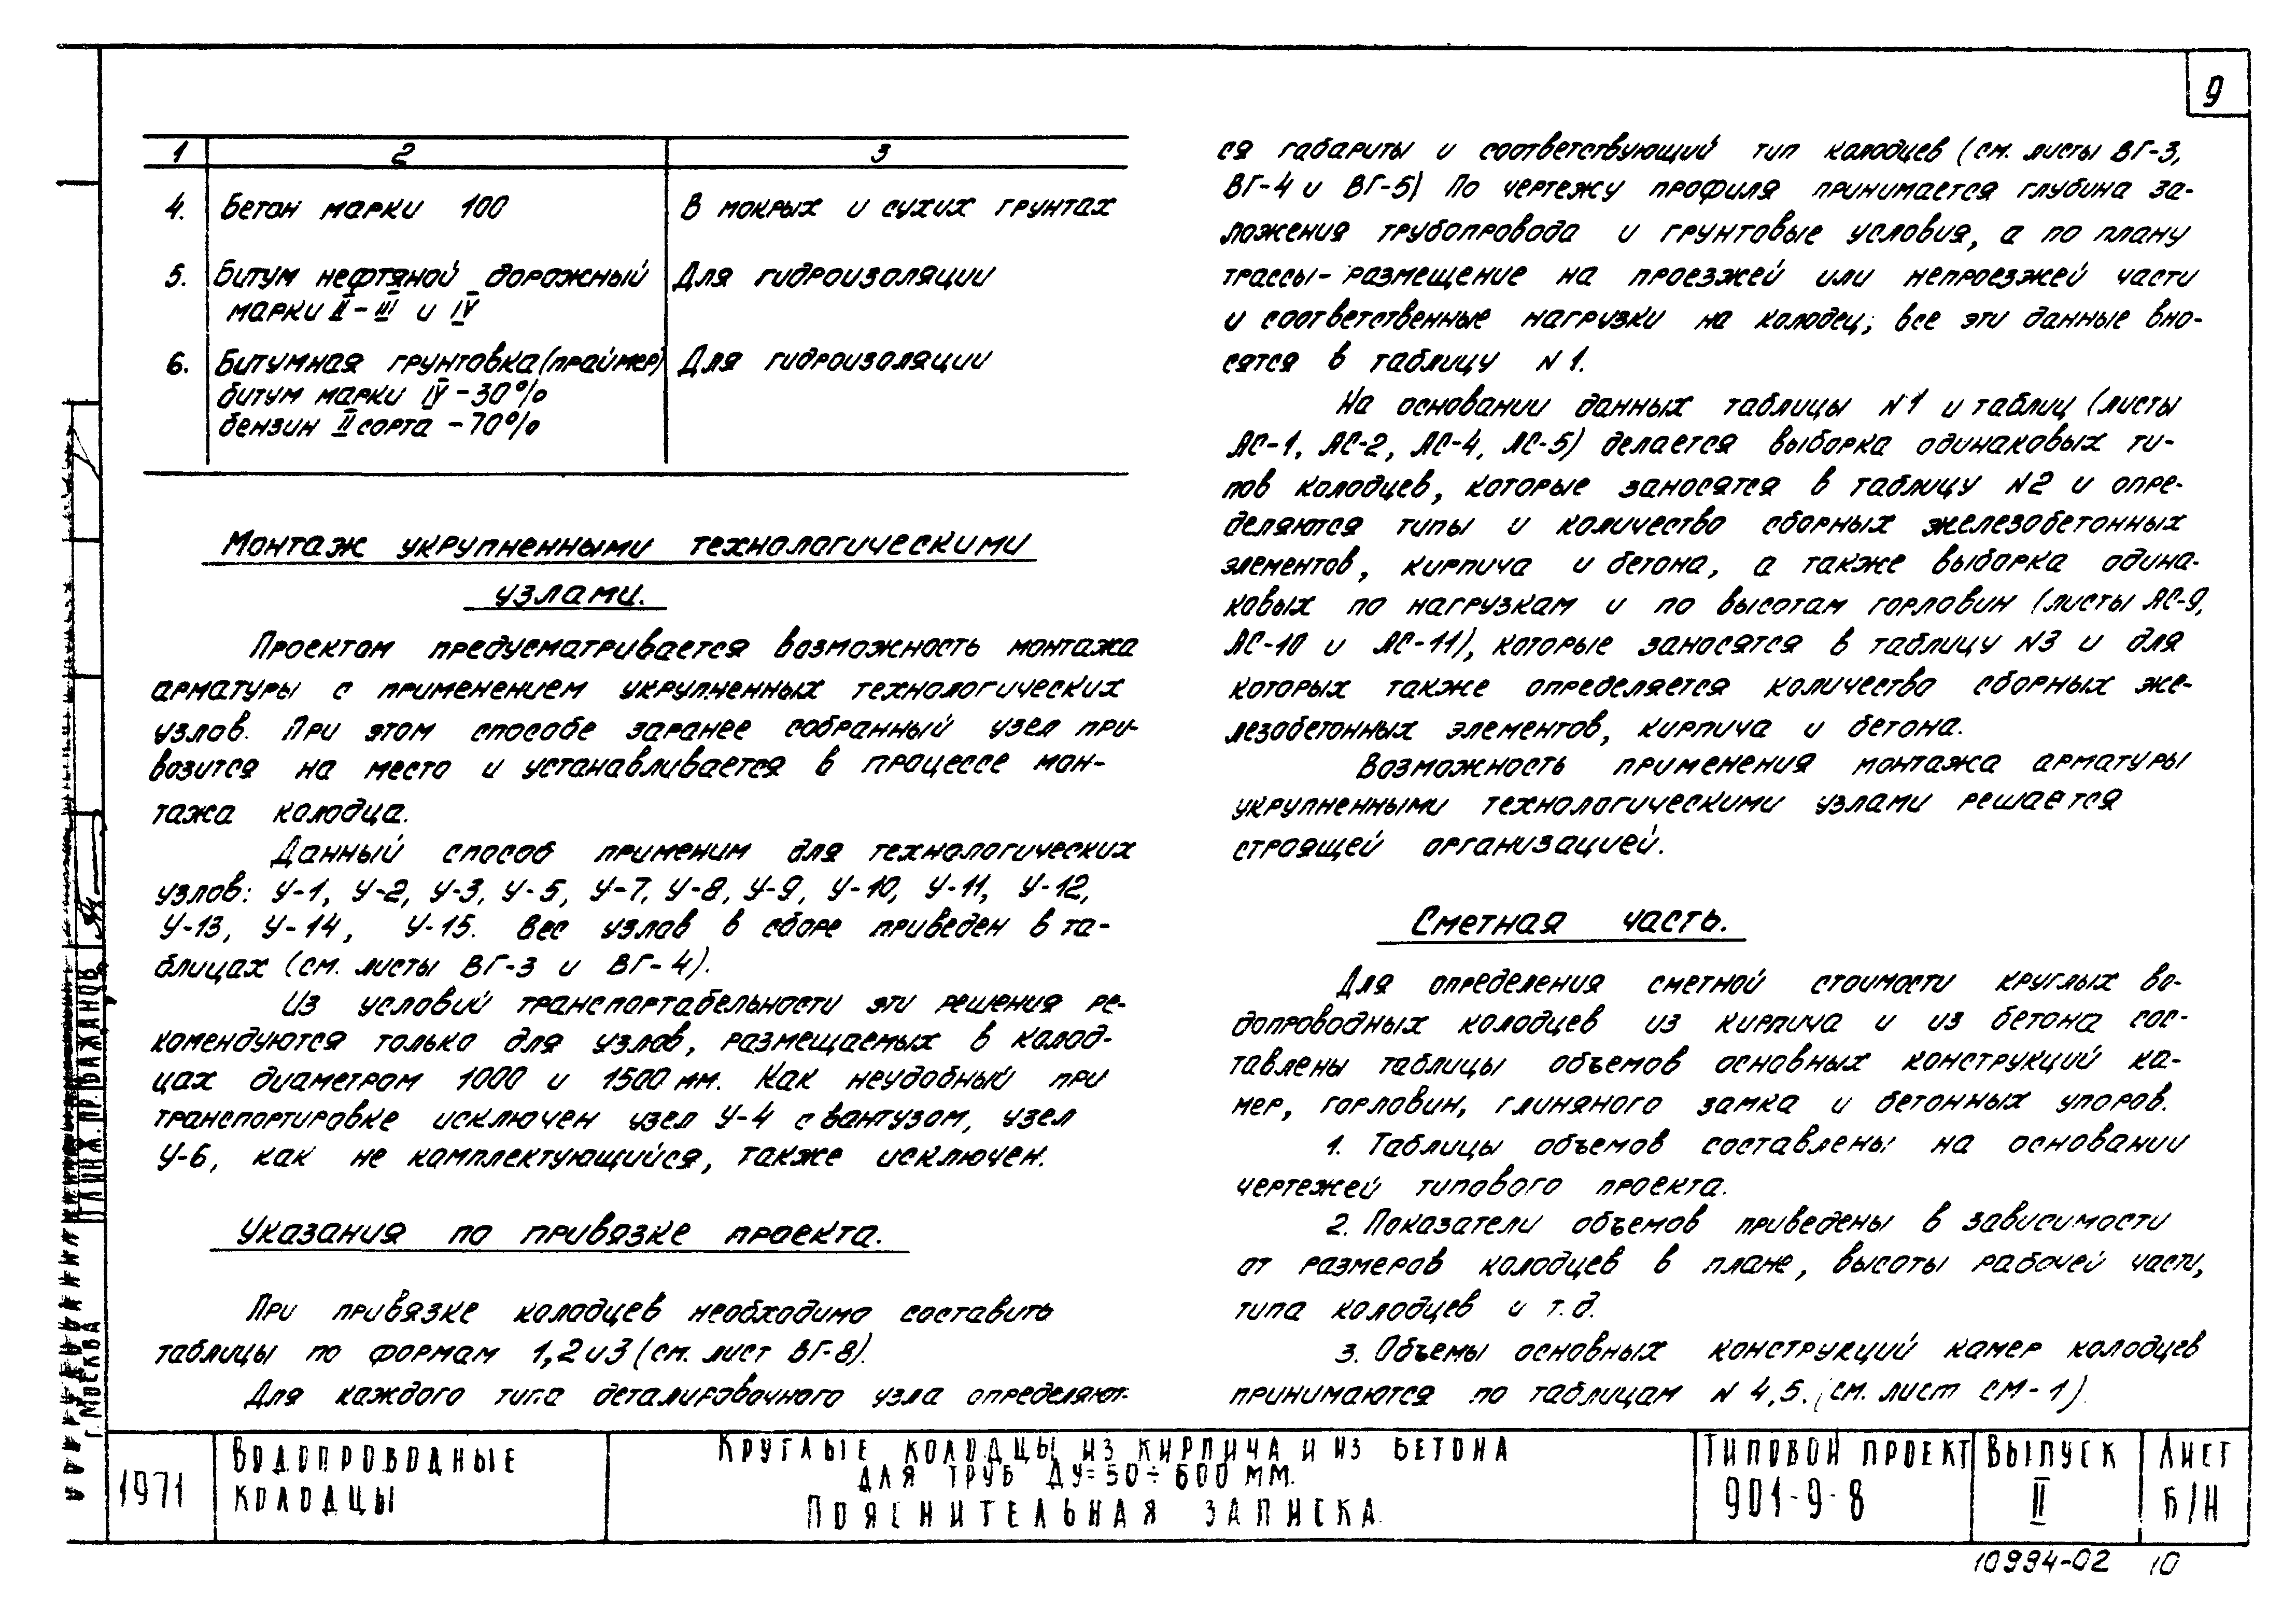 9
1 2 3
4. Бетон марки 100 В мокрых и сухих грунтах
5. Битум нефтяной дорожный Для гидроизоляции
марки II-III и IV
6. Битумная грунтовка (праймер) Для гидроизоляции
битум марки IV -30%
бензин II сорта -70%
Монтаж укрупненными технологическими
узлами.
Проектом предусматривается возможность монтажа
арматуры с применением укрупненных технологических
узлов. При этом способе заранее собранный узел при-
возится на место и устанавливается в процессе мон-
тажа колодца.
Данный способ применим для технологических
узлов: У-1, У-2, У-3, У-5, У-7, У-8, У-9, У-10, У-11, У-12,
У-13, У-14, У-15. Вес узлов в сборе приведен в та-
блицах (см. листы ВГ-3 и ВГ-4).
Из условий транспортабельности эти решения ре-
комендуются только для узлов, размещаемых в колод-
цах диаметром 1000 и 1500 мм. Как неудобный при
транспортировке исключен узел У-4 с вантузом, узел
У-6, как не комплектующийся, также исключен.
Указания по привязке проекта.
При привязке колодцев необходимо составить
таблицы по формам 1,2 и 3 (см. лист ВГ-8).
Для каждого типа деталировочного узла определяют-
ся габариты и соответствующий тип колодцев (см. листы ВГ-3,
ВГ-4 и ВГ-5) По чертежу профиля принимается глубина за-
ложения трубопровода и грунтовые условия, а по плану
трассы- размещение на проезжей или непроезжей части
и соответственные нагрузки на колодец; все эти данные вно-
сятся в таблицу N 1.
На основании данных таблицы N1 и таблиц (листы
АС-1, АС-2, АС-4, АС-5) делается выборка одинаковых ти-
пов колодцев, которые заносятся в таблицу N2 и опре-
деляются типы и количество сборных железобетонных
элементов, кирпича и бетона, а также выборка одина-
ковых по нагрузкам и по высотам горловин (листы АС-9,
АС-10 и АС-11), которые заносятся в таблицу N3 и для
которых также определяется количество сборных же-
лезобетонных элементов, кирпича и бетона.
Возможность применения монтажа арматуры
укрупненными технологическими узлами решается
строящей организацией.
Сметная часть.
Для определения сметной стоимости круглых во-
допроводных колодцев из кирпича и из бетона сос-
тавлены таблицы объемов основных конструкций ка-
мер, горловин, глиняного замка и бетонных упоров.
1. Таблицы объемов составлены на основании
чертежей типового проекта.
2. Показатели объемов приведены в зависимости
от размеров колодцев в плане, высоты рабочей части,
типа колодцев и т.д.
3. Объемы основных конструкций камер колодцев
принимаются по таблицам N 4,5. (см. лист СМ-1).
ГЛ.ИНЖ.ПР. БАЖАНОВ
г. Москва
1971
Водопроводные
колодцы
Круглые колодцы из кирпича и из бетона
для труб Ду=50÷600 мм.
Пояснительная записка.
Типовой проект
901-9-8
Выпуск
II
Лист
Б/Н
10994-02 10